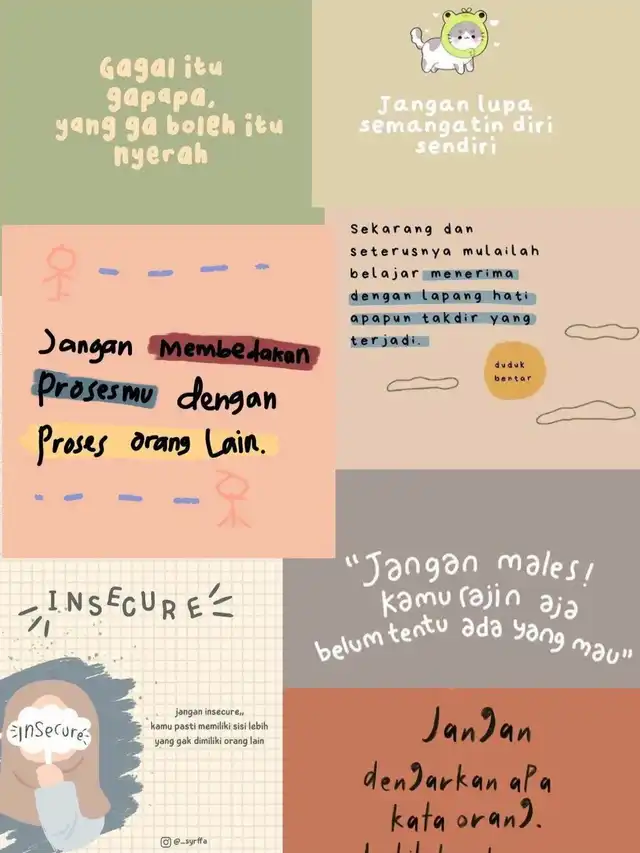 Gagal itu
gapapa,
yang ga boleh itu
nyerah
Jangan lupa
semangatin diri
sendiri
Jangan membedakan
prosesmu dengan
Proses orang Lain.
Sekarang dan
seterusnya mulailah
belajar menerima
dengan lapang hati
apapun takdir yang
terjadi.
duduk
bentar
INSECURE
InSecure
jangan insecure,,
kamu pasti memiliki sisi lebih
yang gak dimiliki orang lain
@_syrffa
"Jangan males!
kamu rajin aja
belum tentu ada yang mau"
Jangan
dengarkan apa
kata orang.